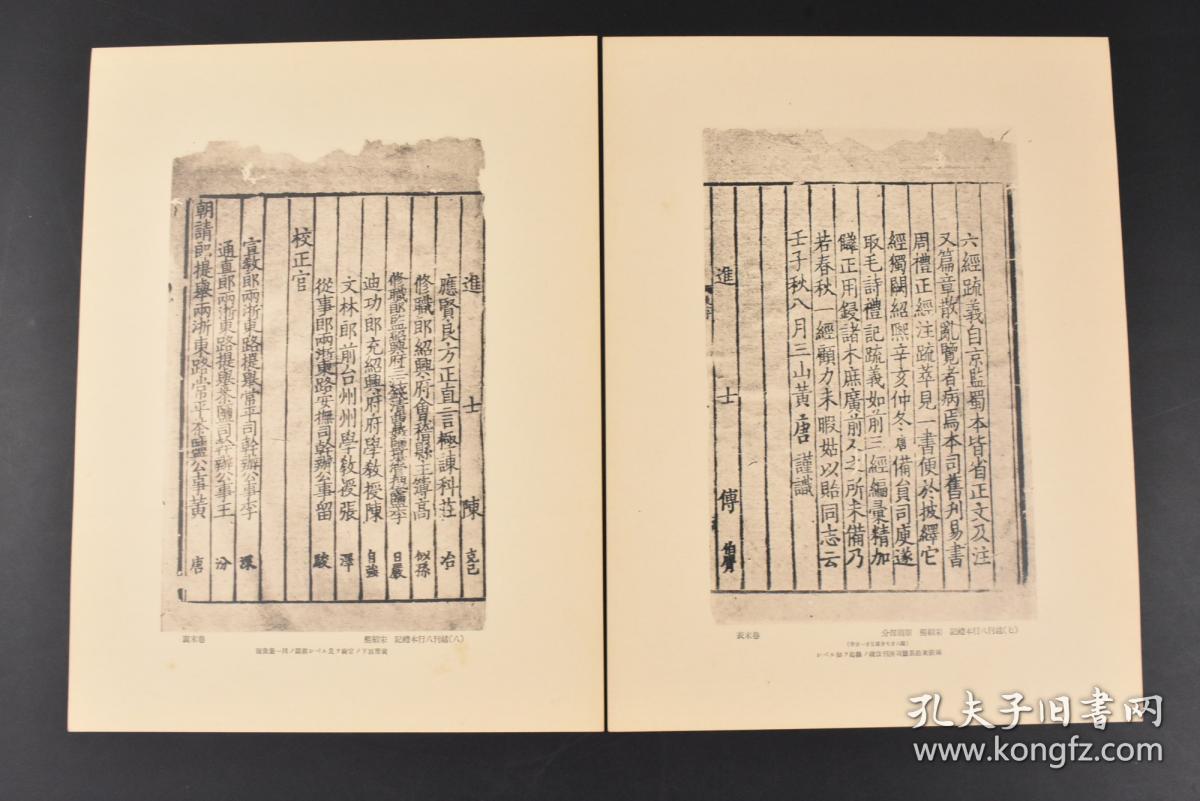 六經疏義自京監蜀本皆省正文及注
又篇章散亂覽者病焉本司舊刋易書
周禮正經注疏萃見一書便於披繹它
經獨闕紹熙辛亥仲冬唐備員司庾遂
取毛詩禮記疏義如前三經編彙精加
讎正用鋟諸木庶廣前人之所未備乃
若春秋一經顧力未暇姑以貽同志云
壬子秋八月三山黃唐謹識
進士傅伯膺
進士陳克己
應賢良方正直言極諫科莊冶
修職郎紹興府會稽縣主簿高似孫
修職郎監紹興府三江錢清曹娥鹽場管押袋鹽李日嚴
迪功郎充紹興府府學教授陳自強
文林郎前台州州學教授張澤
從事郎兩浙東路安撫司幹辦公事留駿
校正官
宣教郎兩浙東路提舉常平司幹辦公事李深
通直郎兩浙東路提舉茶鹽司幹辦公事王汾
朝請郎提舉兩浙東路常平茶鹽公事黃唐
(七)越刊八行本禮記 宋紹熙
卷末表
(八)越刊八行本禮記 宋紹熙
卷末裏
孔夫子旧书网
www.kongfz.com